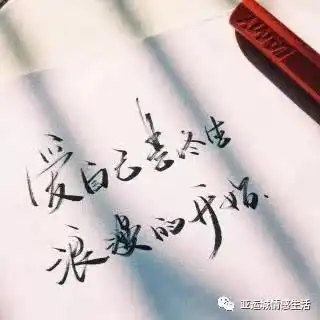 爱自己是终生
浪漫的开始.
亚运城情感生活